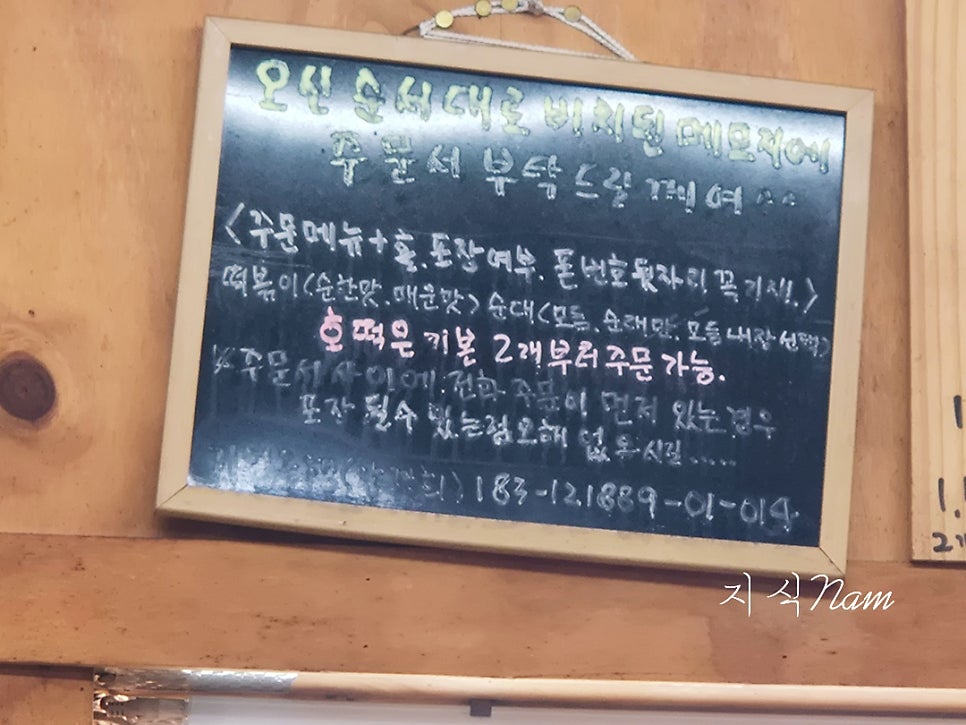 오신 순서대로 비치된 메모지에
주문서 부탁드릴께여^^
<주문메뉴+홀.포장여부.폰번호뒷자리 꼭 기재.>
떡볶이<순한맛.매운맛> 순대<모듬.순대만.모듬내장선택>
호떡은 기본 2개부터 주문가능.
※주문서 사이에.전화 주문이 먼저 있는 경우
포장 될수 있는점 오해 없으시길.....
183-121889-01-014
1.
2개
지식Nam